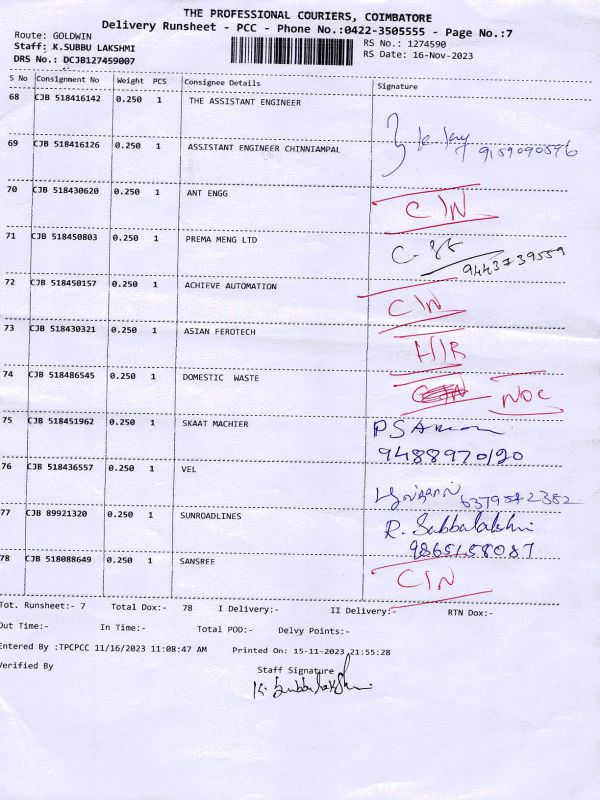 THE PROFESSIONAL COURIERS, COIMBATORE
Delivery Runsheet - PCC - Phone No.:0422-3505555 - Page No.:7
Route: GOLDWIN
Staff: K.SUBBU LAKSHMI
RS No.: 1274590
DRS No.: DCJB127459007
RS Date: 16-Nov-2023
S No Consignment No Weight PCS Consignee Details Signature
68 CJB 518416142 0.250 1 THE ASSISTANT ENGINEER
69 CJB 518416126 0.250 1 ASSISTANT ENGINEER CHINNIAMPAL 9159090596
70 CJB 518430620 0.250 1 ANT ENGG C/N
71 CJB 518450803 0.250 1 PREMA MENG LTD
9443739559
72 CJB 518450157 0.250 1 ACHIEVE AUTOMATION C/N
73 CJB 518430321 0.250 1 ASIAN FEROTECH H/R
74 CJB 518486545 0.250 1 DOMESTIC WASTE NOC
75 CJB 518451962 0.250 1 SKAAT MACHIER
9488970120
76 CJB 518436557 0.250 1 VEL
6379542382
77 CJB 89921320 0.250 1 SUNROADLINES R. Subbalakshmi
9865158087
78 CJB 518088649 0.250 1 SANSREE C/N
Tot. Runsheet:- 7 Total Dox:- 78 I Delivery:- II Delivery:- RTN Dox:-
Out Time:- In Time:- Total POD:- Delvy Points:-
Entered By :TPCPCC 11/16/2023 11:08:47 AM Printed On: 15-11-2023 21:55:28
Verified By
Staff Signature
K. Subbulakshmi